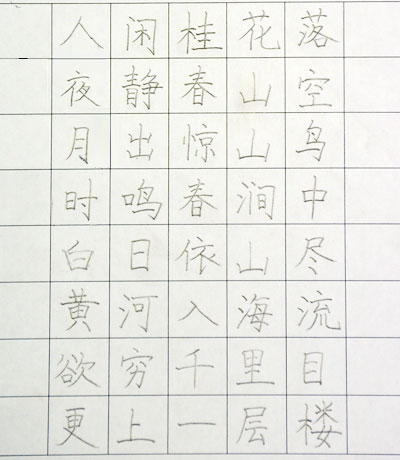 人闲桂花落
夜静春山空
月出惊山鸟
时鸣春涧中
白日依山尽
黄河入海流
欲穷千里目
更上一层楼